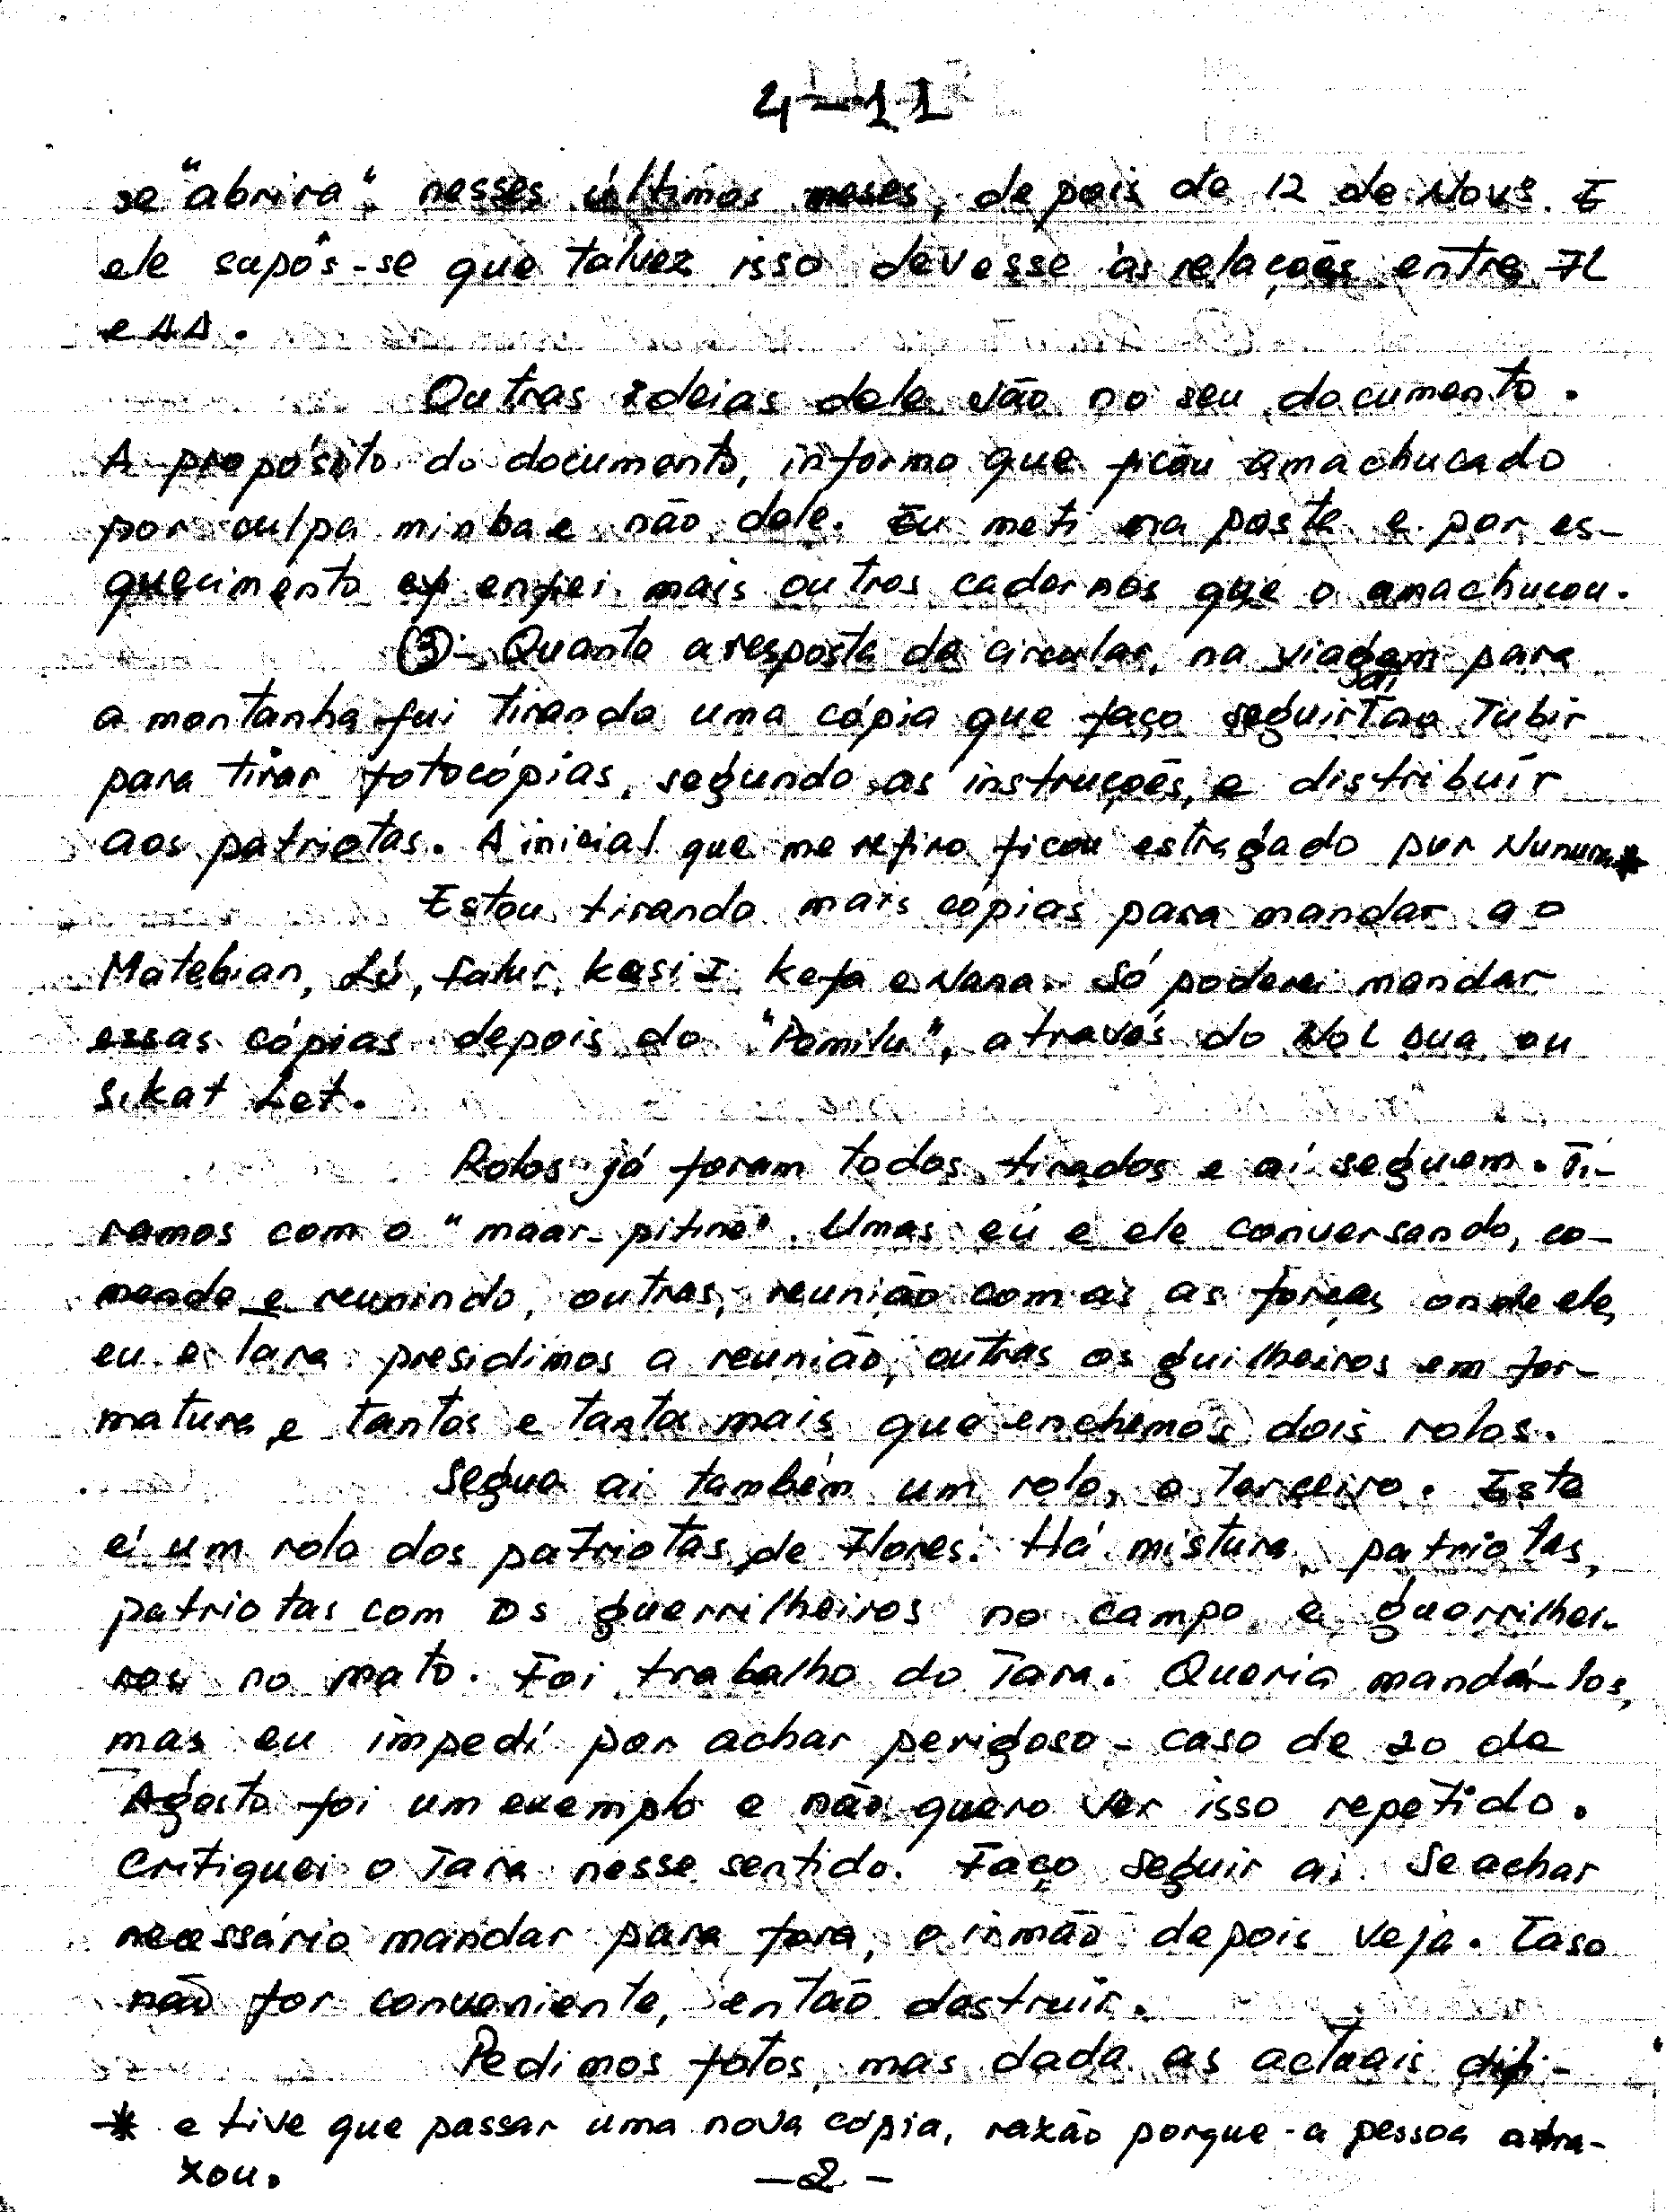 4-11
se "abrira" nesses últimos meses, depois de 12 de Novº. E
ele supôs-se que talvez isso devesse às relações entre FL
e AA.
Outras ideias dele vão no seu documento.
A propósito do documento, informo que ficou amachucado
por culpa minha e não dele. Eu meti na pasta e por es-
quecimento enfiei mais outros cadernos que o amachucou.
(3)- Quanto a resposta da circular, na viagem para
a montanha fui tirando uma cópia que faço seguir Tubir
para tirar fotocópias, segundo as instruções, e distribuir
aos patriotas. A inicial que me refiro ficou estragado por Nunura*
Estou tirando mais cópias para mandar ao
Matebian, Lú, Falur, Kasi I Kefa e Nara. Só poderei mandar
essas cópias depois do "Pemilu", através do Wol Sua ou
Sikat Let.
Rolos já foram todos tirados e aí seguem. Ti-
ramos com o "maar-pitine". Umas eu e ele conversando, co-
mendo e reunindo, outras, reunião com as as forças onde ele,
eu e Tara presidimos a reunião, outras os guilheiros em for-
matura e tantos e tanta mais que enchemos dois rolos.
Segue ai também um rolo, o terceiro. Este
é um rolo dos patriotas de Flores. Há mistura, patriotas,
patriotas com os guerrilheiros no campo e guerrilhei-
ros no mato. Foi trabalho do Tara. Queria mandá-los,
mas eu impedí por achar perigoso - caso de 20 de
Agosto foi um exemplo e não quero ver isso repetido.
Critiquei o Tara nesse sentido. Faço seguir ai. Se achar
necessário mandar para fora, o irmão depois veja. Caso
não for conveniente, então destruir.
Pedimos fotos, mas dada as actuais difi-
* e tive que passar uma nova cópia, razão porque a pessoa atra-
xou.
-2-